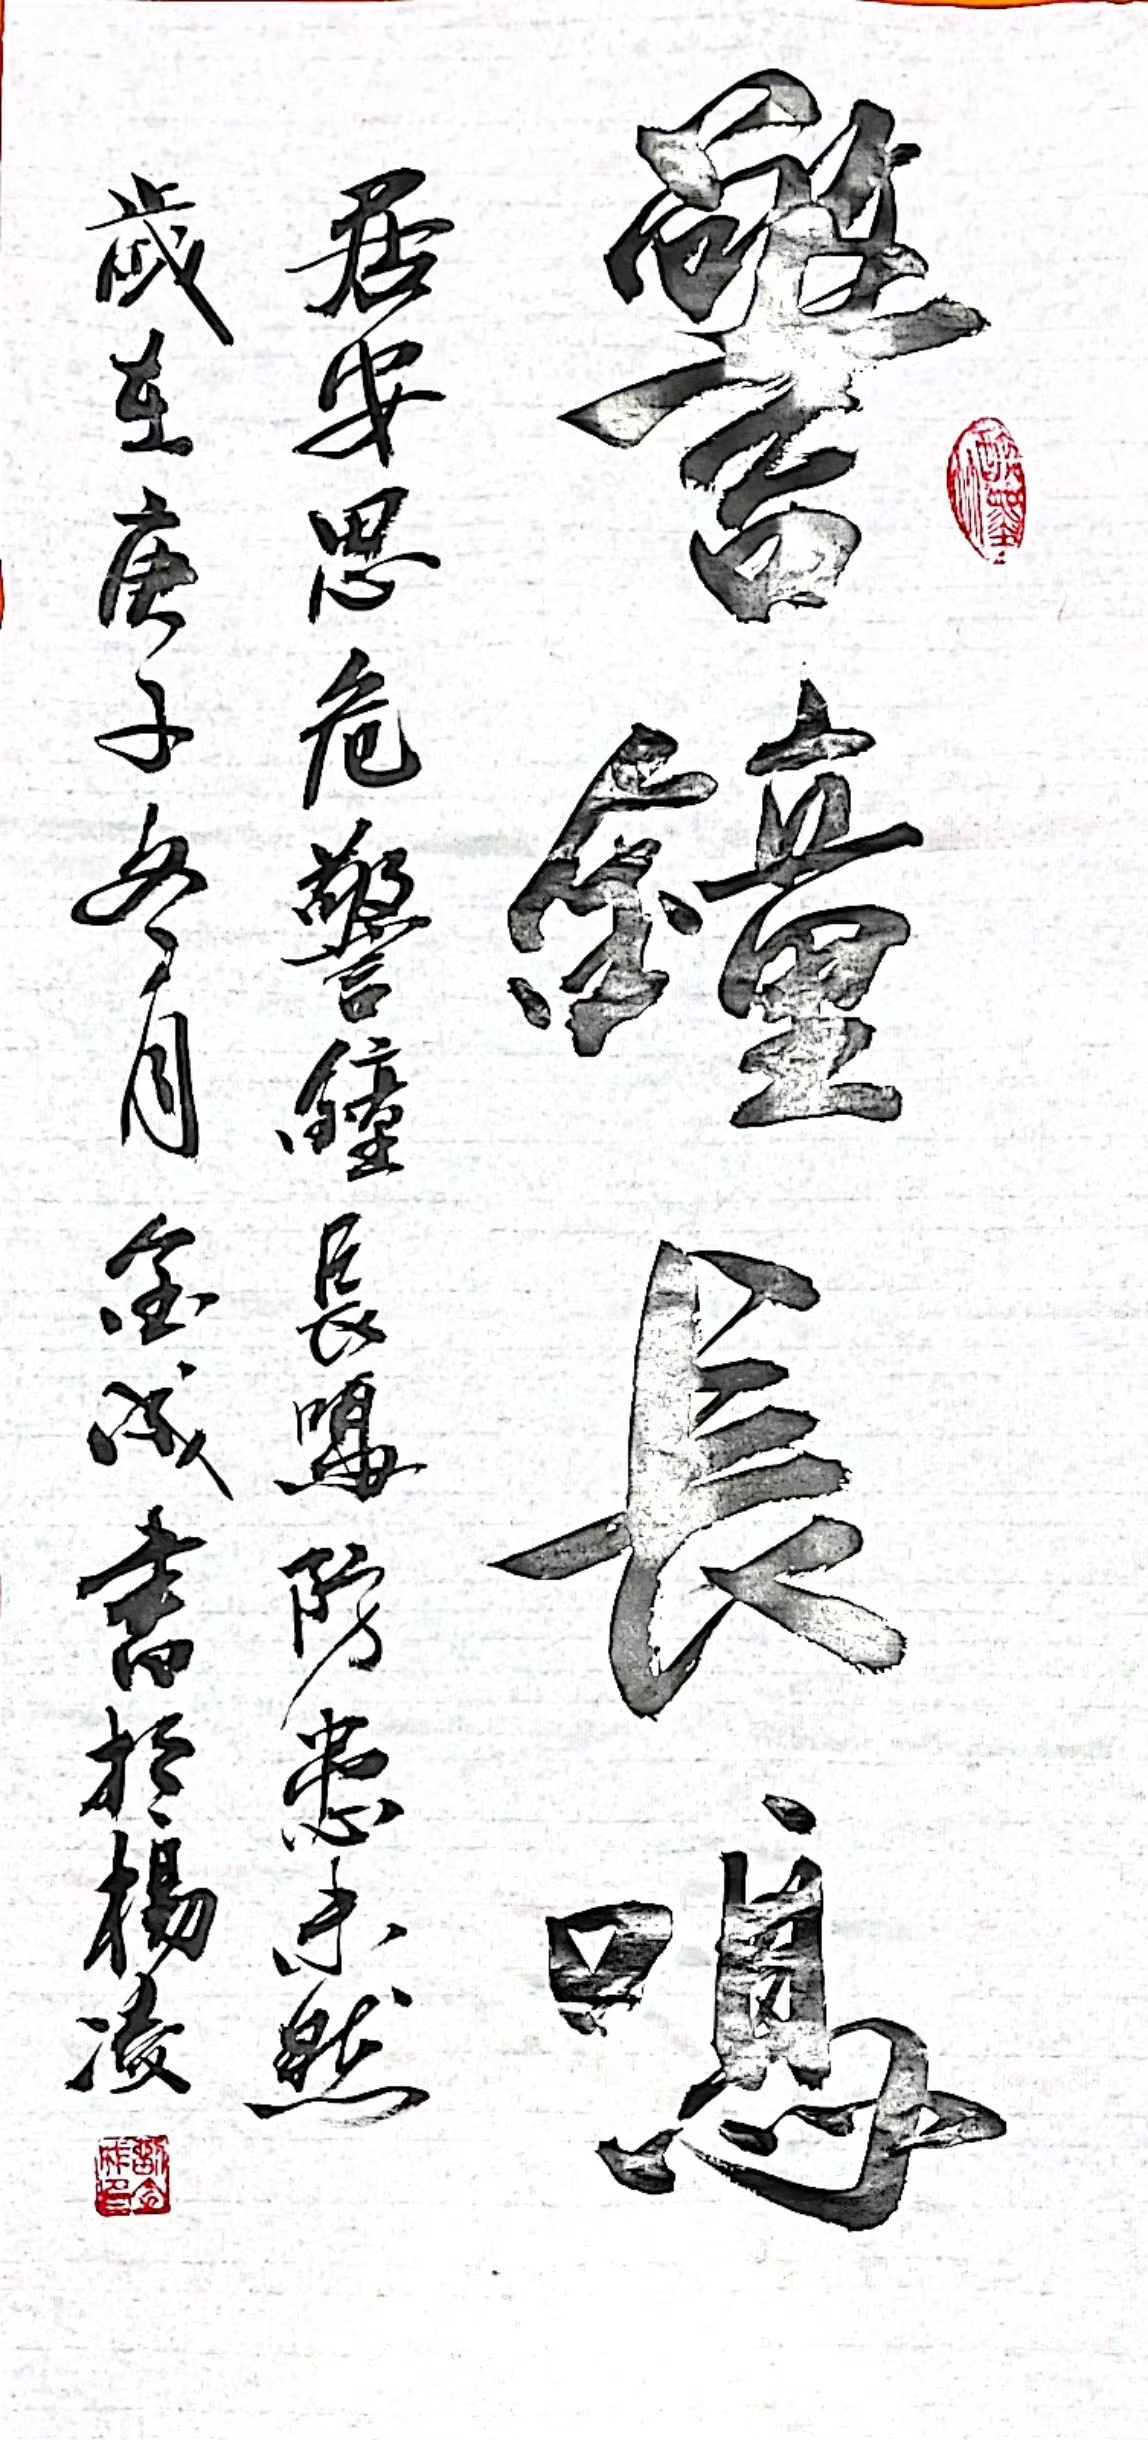 警鐘長鳴
居安思危警鐘長鳴防患未然
歲在庚子冬月金成書於楊凌